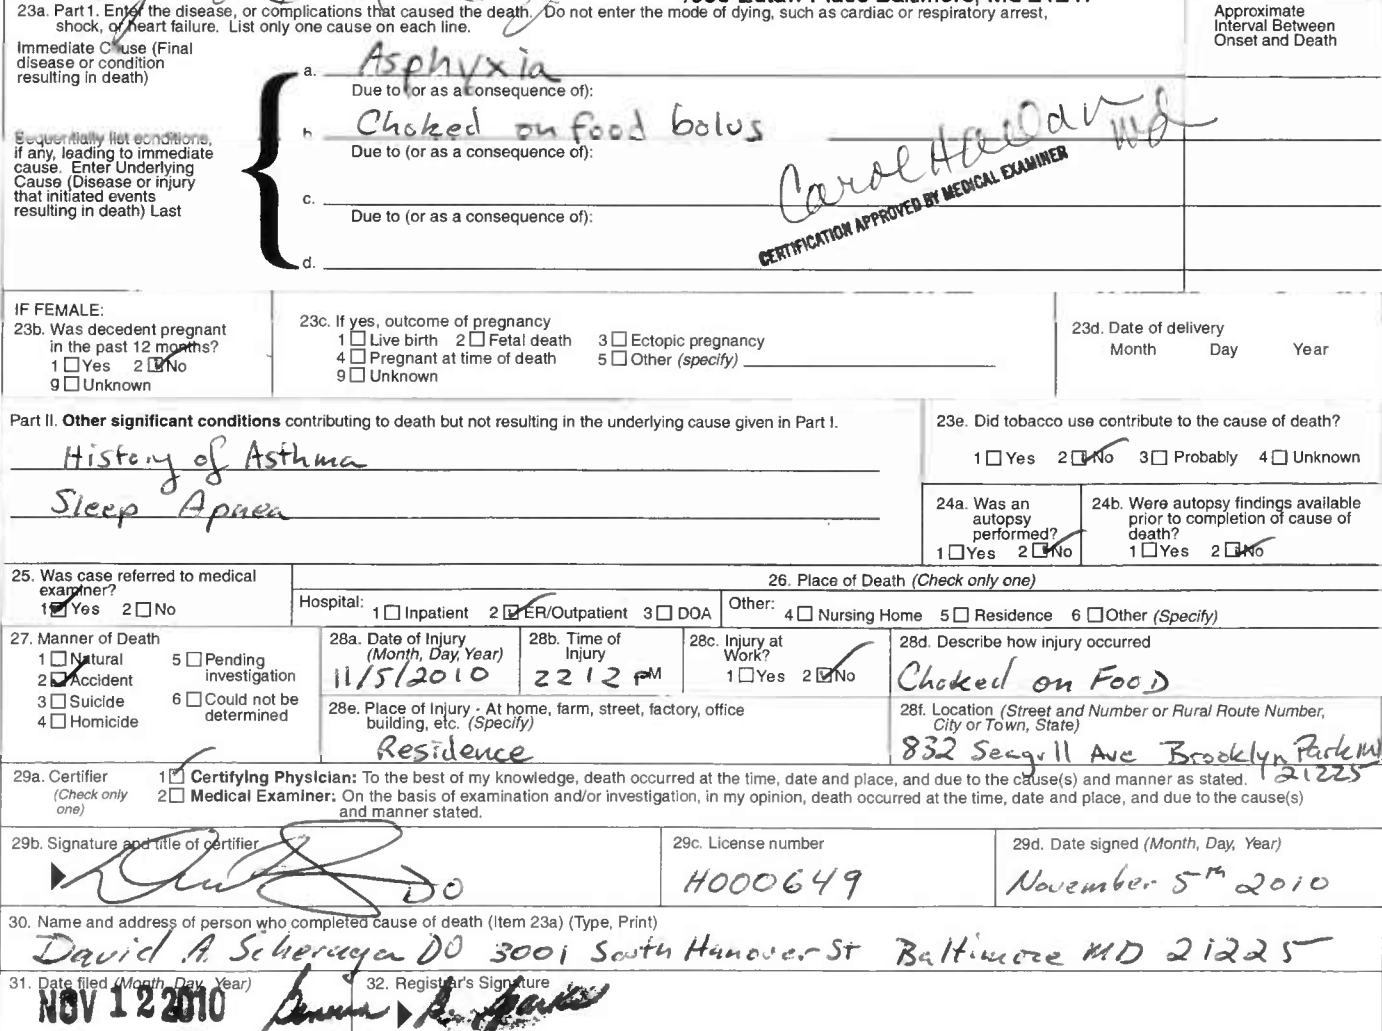 23a. Part 1. Enter the disease, or complications that caused the death. Do not enter the mode of dying, such as cardiac or respiratory arrest,
shock, or heart failure. List only one cause on each line.
Approximate
Interval Between
Onset and Death
Immediate Cause (Final
disease or condition
resulting in death)
a. Asphyxia
Due to (or as a consequence of):
Sequentially list conditions,
if any, leading to immediate
cause. Enter Underlying
Cause (Disease or injury
that initiated events
resulting in death) Last
b. Choked on food bolus
Due to (or as a consequence of):
c.
Due to (or as a consequence of):
d.
Carol MD
CERTIFICATION APPROVED BY MEDICAL EXAMINER
IF FEMALE:
23b. Was decedent pregnant
in the past 12 months?
1 Yes 2 No
9 Unknown
23c. If yes, outcome of pregnancy
1 Live birth 2 Fetal death 3 Ectopic pregnancy
4 Pregnant at time of death 5 Other (specify)
9 Unknown
23d. Date of delivery
Month Day Year
Part II. Other significant conditions contributing to death but not resulting in the underlying cause given in Part I.
History of Asthma
Sleep Apnea
23e. Did tobacco use contribute to the cause of death?
1 Yes 2 No 3 Probably 4 Unknown
24a. Was an
autopsy
performed?
1 Yes 2 No
24b. Were autopsy findings available
prior to completion of cause of
death?
1 Yes 2 No
25. Was case referred to medical
examiner?
1 Yes 2 No
26. Place of Death (Check only one)
Hospital: 1 Inpatient 2 ER/Outpatient 3 DOA
Other: 4 Nursing Home 5 Residence 6 Other (Specify)
27. Manner of Death
1 Natural
2 Accident
3 Suicide
4 Homicide
5 Pending
investigation
6 Could not be
determined
28a. Date of Injury
(Month, Day, Year)
11/5/2010
28b. Time of
Injury
2212 PM
28c. Injury at
Work?
1 Yes 2 No
28d. Describe how injury occurred
Choked on FOOD
28e. Place of Injury - At home, farm, street, factory, office
building, etc. (Specify)
Residence
28f. Location (Street and Number or Rural Route Number,
City or Town, State)
832 Seagull Ave Brooklyn Park MD
21225
29a. Certifier
(Check only
one)
1 Certifying Physician: To the best of my knowledge, death occurred at the time, date and place, and due to the cause(s) and manner as stated.
2 Medical Examiner: On the basis of examination and/or investigation, in my opinion, death occurred at the time, date and place, and due to the cause(s)
and manner stated.
29b. Signature and title of certifier
DO
29c. License number
H000649
29d. Date signed (Month, Day, Year)
November 5th 2010
30. Name and address of person who completed cause of death (Item 23a) (Type, Print)
David A. DO 3001 South Hanover St Baltimore MD 21225
31. Date filed (Month, Day, Year)
NOV 12 2010
32. Registrar's Signature